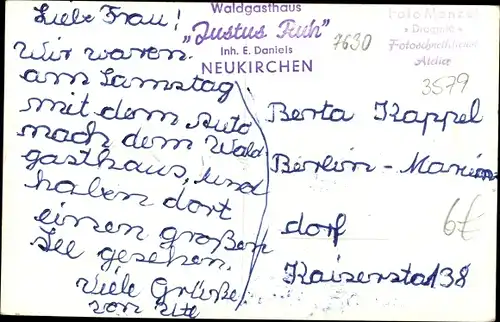 Liebe Frau!
Wir waren
am Samstag
mit dem Auto
nach dem Wald
gasthaus, und
haben dort
einen großen
See gesehen.
Viele Grüße
von Ute
Waldgasthaus
„Justus Ruh"
Inh. E. Daniels
NEUKIRCHEN
7630
Foto
Drogerie
Atelier
3579
Berta Kappel
Berlin-Marien
dorf
Kaiserstr 138
6€